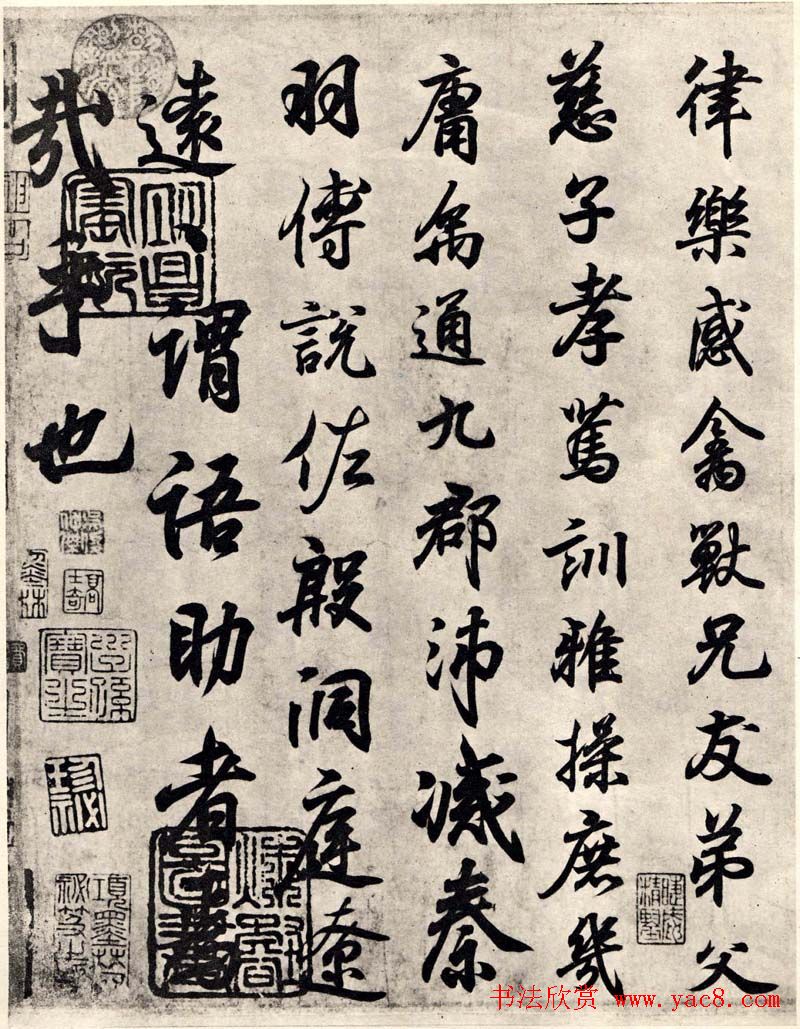 律樂感禽獸兄友弟父
慈子孝篤訓雅操庶幾
庸禹通九郡沛滅秦
羽傅說佐殷洞庭遼
遠謂語助者
哉乎也
书法欣赏 www.yac8.com